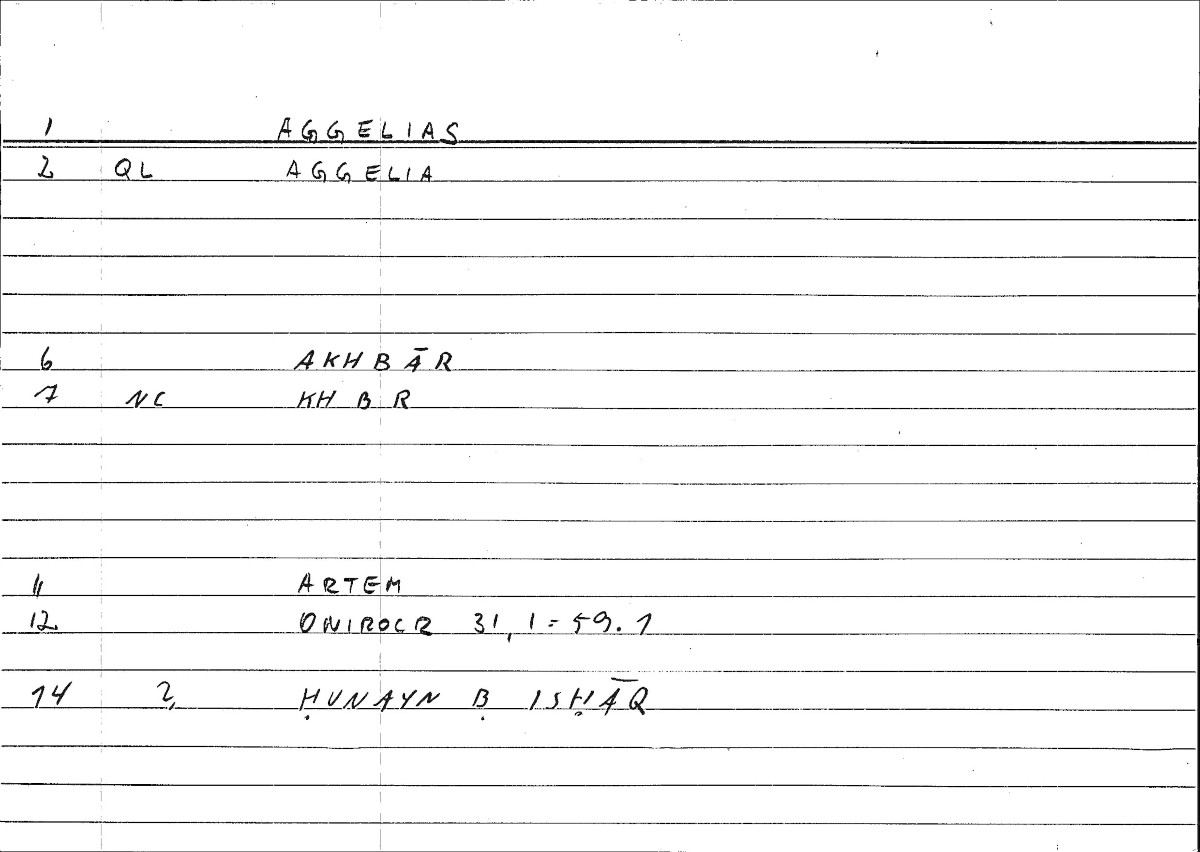 1 AGGELIAS
2 QL AGGELIA
6 AKHBĀR
7 NC KH B R
11 ARTEM
12 ONIROCR 31,1=59.1
14 2, ḤUNAYN Ḅ ISḤĀQ